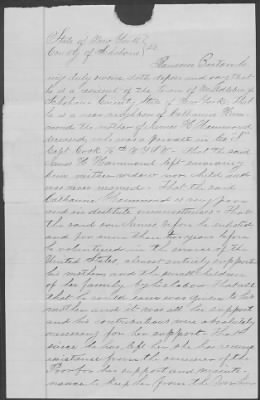 State of New York }
County of Schoharie } SS.
Benton
being duly sworn doth depose and say that
he is a resident of the town of Middleburgh
Schoharie County State of New York. That
he is a near neighbor of Catharine Ham-
mond the mother of James H Hammond
deceased, who was a private in the
Capt Cook 76th N.Y.S.V. That the said
James H Hammond left surviving
him neither widow nor child and
was never married. That the said
Catharine Hammond is very poor
and in destitute circumstances. That
the said son James before he enlisted
and for more than two years before
he volunteered in the service of the
United States, almost entirely supported
his mother and the small children
of her family by his labor That all
that he could earn was given to his
mother and it was all her support
and his contributions were absolutely
necessary for her support. That
since he has left her she has receiv
assistance from the overseer of the
Poor for her support and mainte-
nance to keep her from the Poor house